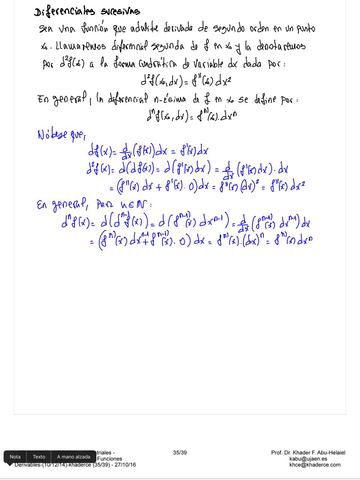 Diferenciales sucesivas
Sea una función que admite derivada de segundo orden en un punto
x₀. Llamaremos diferencial segunda de f en x₀ y la denotaremos
por d²f(x₀) a la forma cuadrática de variable dx dada por:
d²f(x₀,dx) = f''(x₀)dx²
En general, la diferencial n-ésima de f en x₀ se define por:
dⁿf(x₀,dx) = fⁿ⁾(x₀)dxⁿ
Nótese que,
df(x) = d/dx (f(x))dx = f'(x)dx
d²f(x) = d(df(x)) = d(f'(x)dx) = d/dx (f'(x)dx)·dx
= (f''(x)dx + f'(x)·0)dx = f''(x)(dx)² = f''(x)dx²
En general, para n∈ℕ:
dⁿf(x) = d(dⁿ⁻¹f(x)) = d(fⁿ⁻¹⁾(x)dxⁿ⁻¹) = d/dx (fⁿ⁻¹⁾(x)dxⁿ⁻¹)dx
= (fⁿ⁾(x)dxⁿ⁻¹ + fⁿ⁻¹⁾(x)·0)dx = fⁿ⁾(x)·(dx)ⁿ = fⁿ⁾(x)dxⁿ
Nota Texto A mano alzada
triales -
Funciones
Derivables-(10/12/14)-khaderce (35/39) - 27/10/16
35/39
Prof. Dr. Khader F. Abu-Helaiel
kabu@ujaen.es
khce@khaderce.com